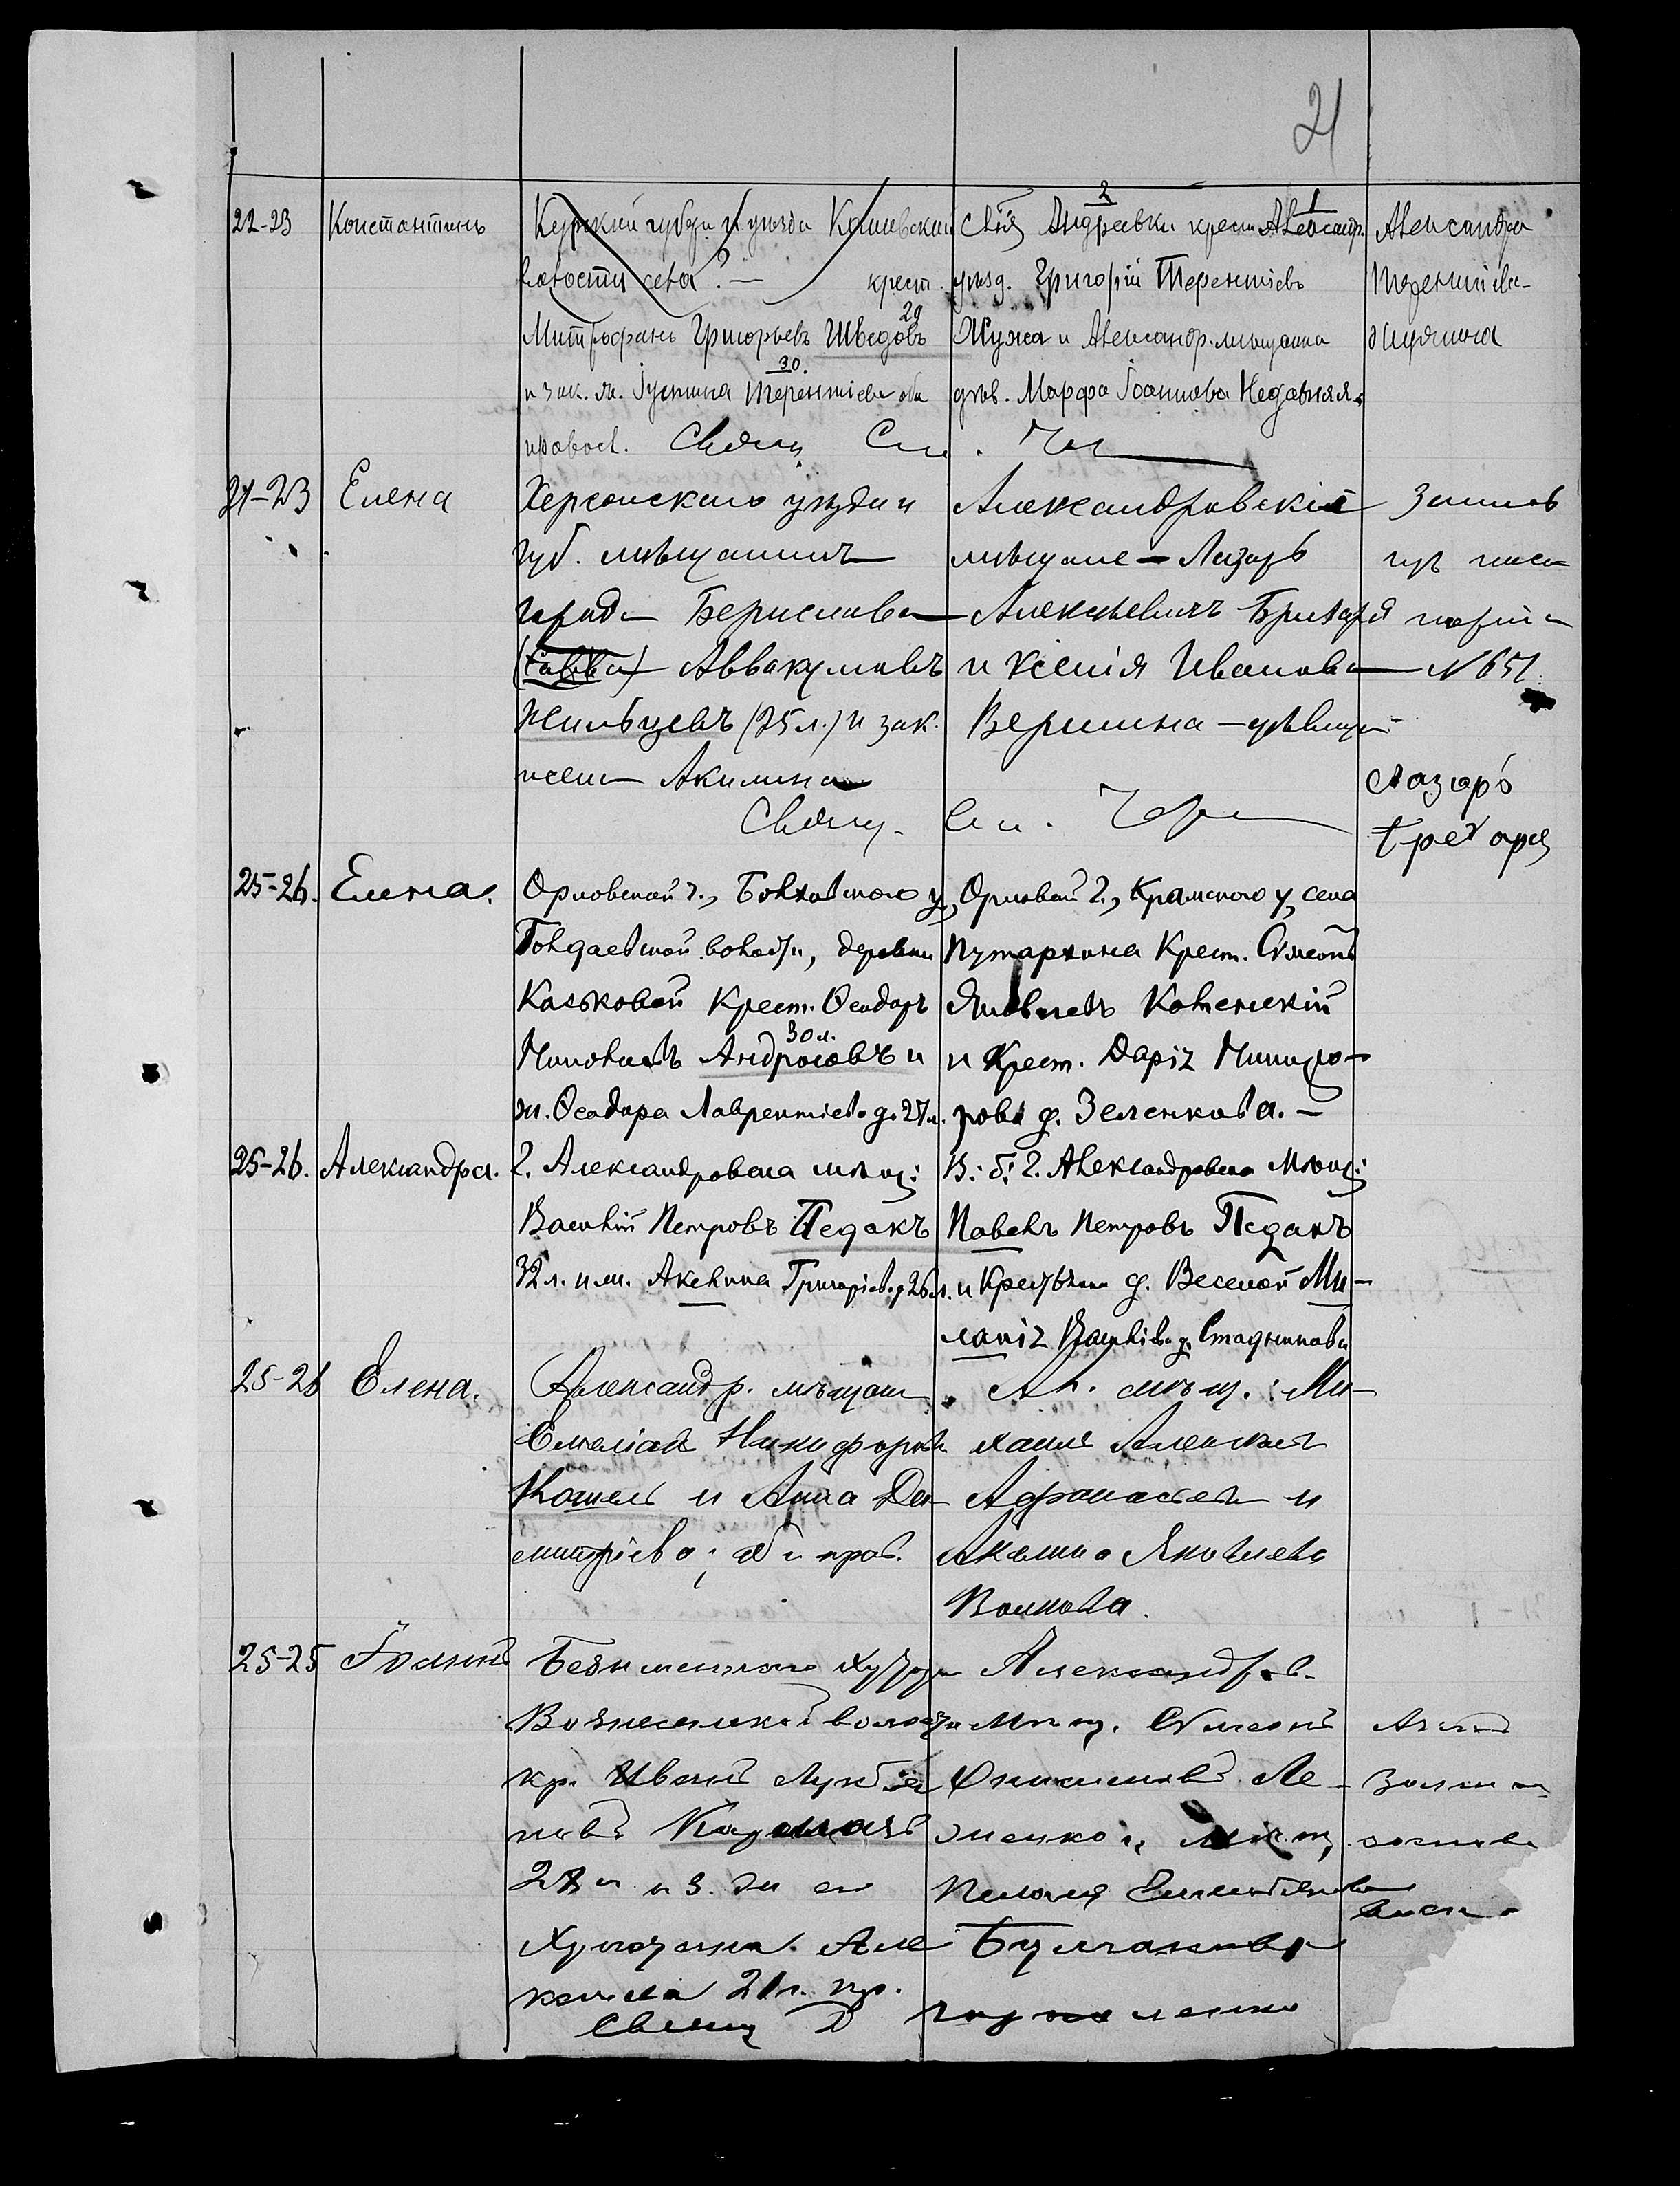 21
22-23
Константинъ
Курской губерн и уѣзда Каш
волости села? — крест.
Митрофанъ Григорьевъ Шведовъ 29
и зак. ж. Іустина Терентіева 30. оба
правосл. Свящ.
села Андреевки крест. Александр.
уѣзд. Григорій Терентіевъ
Жужа и Александр. мѣщанка
дѣв. Марфа Іоаннова Недавняя.
Александра
Терентіева
21-23
Елена
Херсонскаго уѣзда и
губ. мѣщанинъ
города Берислава
(Савва) Аввакумовъ
Жильцевъ (25 л.) и зак.
жена Акилина
Свящ.
Александровскіе
мѣщане — Лазарь
Алексѣевичъ
и Ксенія Иванова
Вершина — дѣвица
№ 651
Лазарь
25-26.
Елена.
Орловской г., Болховского у,
волости, деревни
Каськовой Крест. Ѳеодоръ
Андросовъ 30 л. и
ж. Ѳеодора Лаврентіева д. 27 л.
Орловской г., Кромского у, села
Путархина Крест. Симеонъ
Яковлевъ Котенскій
и Крест. Дарія Никифо-
рова д. Зеленкова. —
25-26.
Александра.
г. Александровска мѣщ:
Василій Петровъ Педакъ
32 л. и ж. Акелина Григоріев. д 26 л.
В: б: г. Александровска Мѣщ:
Павелъ Петровъ Педакъ
и Крестьянка д. Веселой Ми-
ланія Василіева д. Стадникова
25-26
Елена.
Александр. мѣщан
Емеліанъ Никифоровъ
Кошель и Анна Ди-
митріева; об. прав.
Ал. мѣщ.: Ми-
хаилъ Алексѣевъ
Афанасьевъ и
Акелина Яковлева
Волкова.
25-25
Безименного Хутора
Вознесенской волости
кр. Иванъ Лукья
новъ
и з. ж. его
21 л. пр.
Свящ
Александров.
Мѣщ. Симеонъ
Онисимовъ Ле-
менко и мѣщ.
Пелагея Емельянова
Булгакова